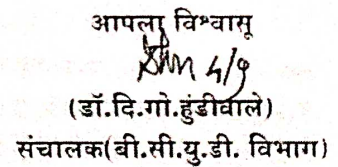 आपला विश्वासू
(डॉ.दि.गो.हुंडीवाले)
संचालक(बी.सी.यु.डी. विभाग)